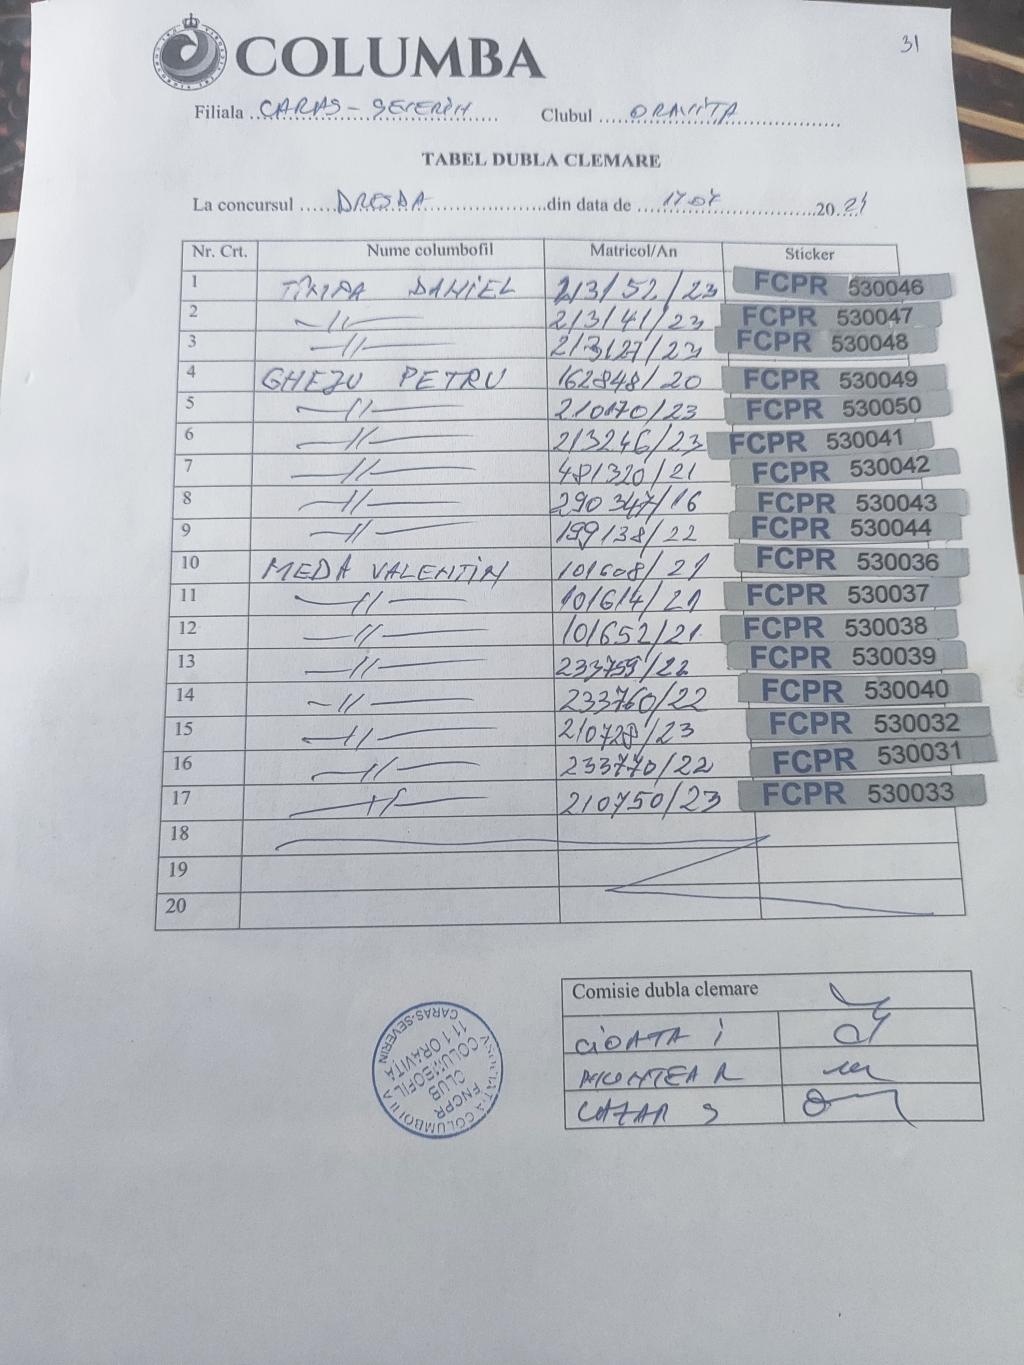 COLUMBA
31
Filiala CARAS-SEVERIN Clubul ORAVITA
TABEL DUBLA CLEMARE
La concursul DRESDA din data de 17.07 20
Nr. Crt. Nume columbofil Matricol/An Sticker
1 DANIEL 213152/23 FCPR 530046
2 -//- 213141/23 FCPR 530047
3 -//- 213127/23 FCPR 530048
4 GHEJU PETRU 162848/20 FCPR 530049
5 -//- 210170/23 FCPR 530050
6 -//- 213246/23 FCPR 530041
7 -//- 481320/21 FCPR 530042
8 -//- 290347/16 FCPR 530043
9 -//- 199138/22 FCPR 530044
10 MEDA VALENTIN 101608/21 FCPR 530036
11 -//- 101614/21 FCPR 530037
12 -//- 101652/21 FCPR 530038
13 -//- 233759/22 FCPR 530039
14 -//- 233760/22 FCPR 530040
15 -//- 210728/23 FCPR 530032
16 -//- 233770/22 FCPR 530031
17 -//- 210750/23 FCPR 530033
18
19
20
Comisie dubla clemare
CIOATA I
MUNTEA R
LAZAR S
CARAS-SEVERIN
11-1 ORAVIȚA
COLUMBOFIL
CLUB
FNCPR